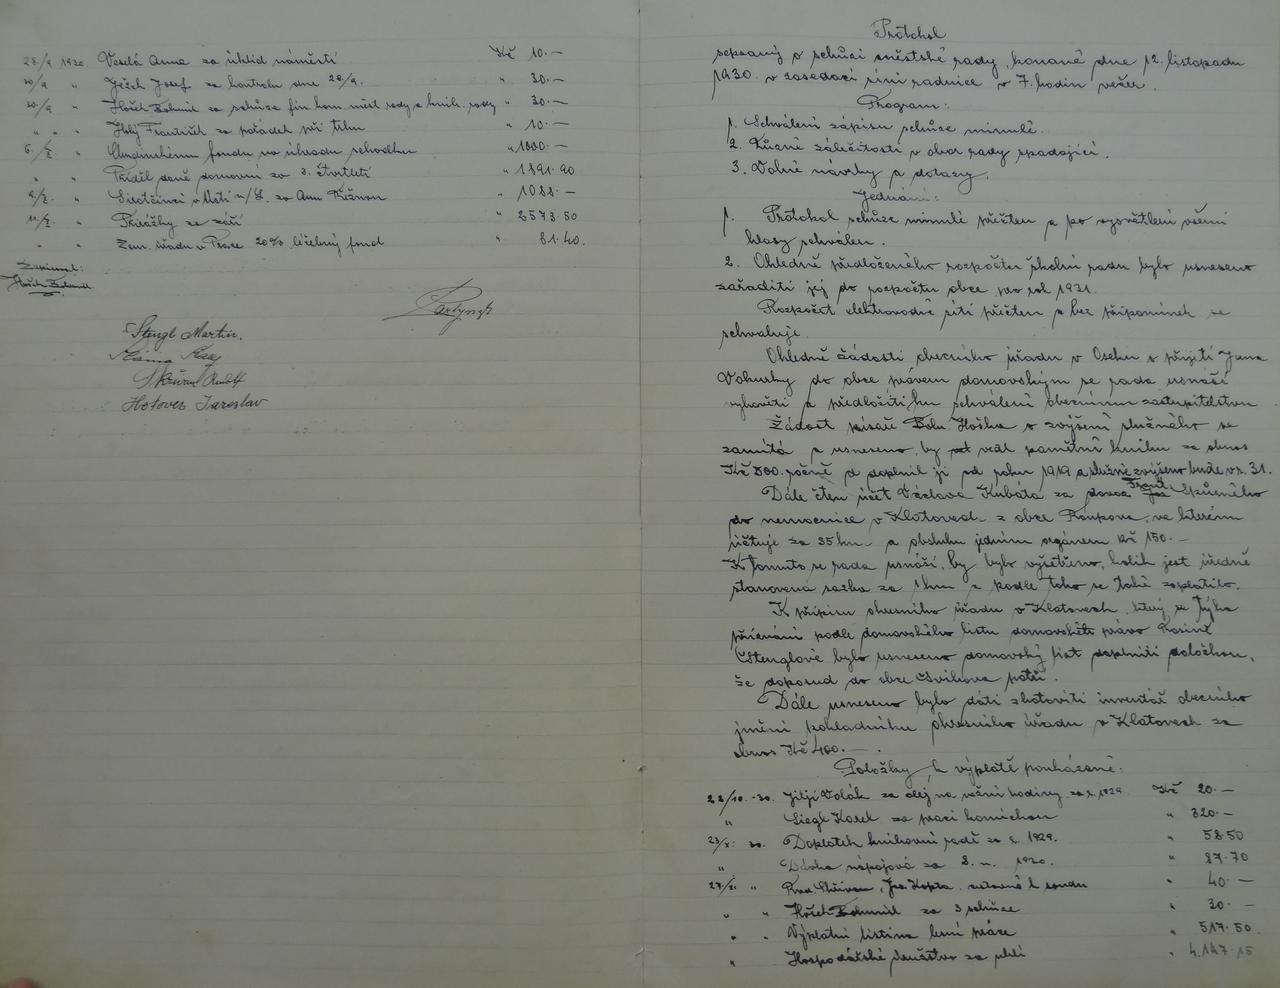 28/9 1930. Veselá Anna za úklid náměstí Kč 10.—
30/9 " Ježek Josef za kontrolu dne 28/9. " 30.—
30/9 " Hošek Bohumil za schůze fin. kom. měst. rady a knih. rady " 30.—
" " " Holý František za pořádek při trhu " 10.—
6./X. " fondu na úhradu schodku " 1000.—
" " Příděl daně domovní za 3. čtvrtletí " 1891.90
9/X. " Sirotčinci v Ústí n/L. za Annu " 1088.—
11/X. " Přirážky za září " 2573.50
" " Zem. úřadu v Praze 20% léčebný fond " 81.40.
Zapisoval:
Hošek Bohumil
Stengl Martin.
Skřivan Rudolf
Hotovec Jaroslav
Protokol
sepsaný o schůzi městské rady, konané dne 12. listopadu
1930. v zasedací síni radnice v 7. hodin večer.
Program:
1. Schválení zápisu schůze minulé.
2. Různé záležitosti v obor rady spadající.
3. Volné návrhy a dotazy.
Jednání:
1. Protokol schůze minulé přečten a po vysvětlení všemi
hlasy schválen.
2. Ohledně předloženého rozpočtu školní rady bylo usneseno
zařaditi jej do rozpočtu obce pro rok 1931.
Rozpočet elektrovodní sítě přečten a bez připomínek se
schvaluje.
Ohledně žádosti obecního úřadu v Oseku o přijetí Jana
Vokurky do obce právem domovským se rada usnáší
vyhověti a předložiti ku schválení obecnímu zastupitelstvu
Žádost písaře Boh. Hoška o zvýšení služného se
zamítá a usneseno, by vedl pamětní knihu za obnos
Kč 500.- ročně a doplnil ji od roku 1919 a služné zvýšeno bude v r. 31.
Dále čten účet Václava Kubáta za dovoz Frant.
do nemocnice v Klatovech z obce Roupova, ve kterém
účtuje za 35 km a obsluhu jedním orgánem Kč 150.—
K tomuto se rada usnáší, by bylo vyšetřeno, kolik jest úředně
stanovená sazba za 1 km a podle toho se také zaplatilo.
K přípisu okresního úřadu v Klatovech, který se týká
přiznání podle domovského listu domovské právo Rosině
Stenglové bylo usneseno domovský list doplniti doložkou,
že doposud do obce Švihova patří.
Dále usneseno bylo dáti zhotoviti inventář obecního
jmění pokladníku okresního úřadu v Klatovech za
obnos Kč 400.— .
Položky k výplatě poukázané:
22/10.-30. Jiljí Volák za olej na věžní hodiny za r. 1929. Kč 20.—
" Siegl Karel za práci kominickou " 320.—
23/X. 30. Doplatek knihovní radě za r. 1929. " 58.50
" Dávka nápojová za 1930. " 87.70
27/X. " Skřivan, Jos. Kopta, cestovné k soudu " 40.—
" " Hošek Bohumil za 3 schůze " 30.—
" " Výplatní listina lesní práce " 517.50.
" Hospodářské družstvo za uhlí " 4.147.15